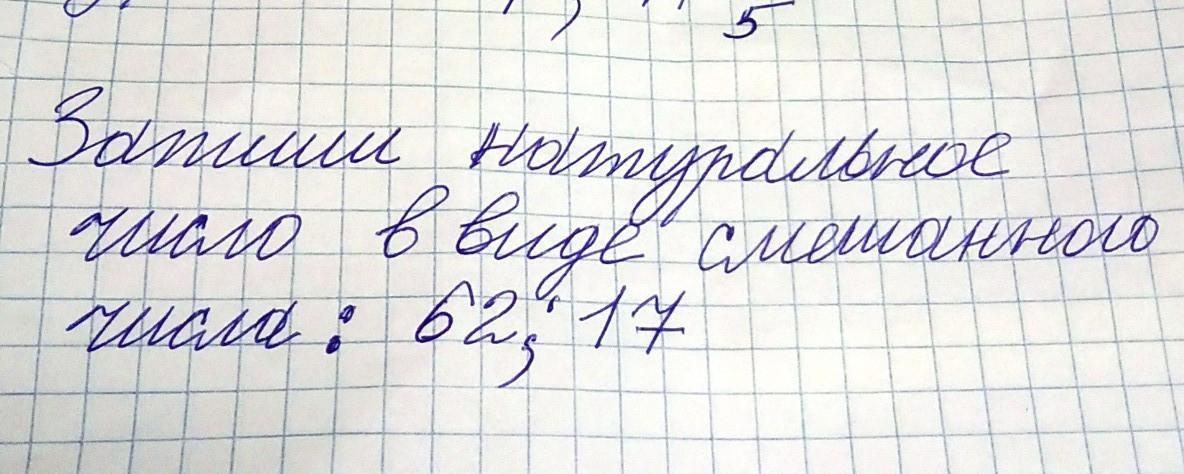 5
Запиши натуральное
число в виде смешанного
числа: 62; 17